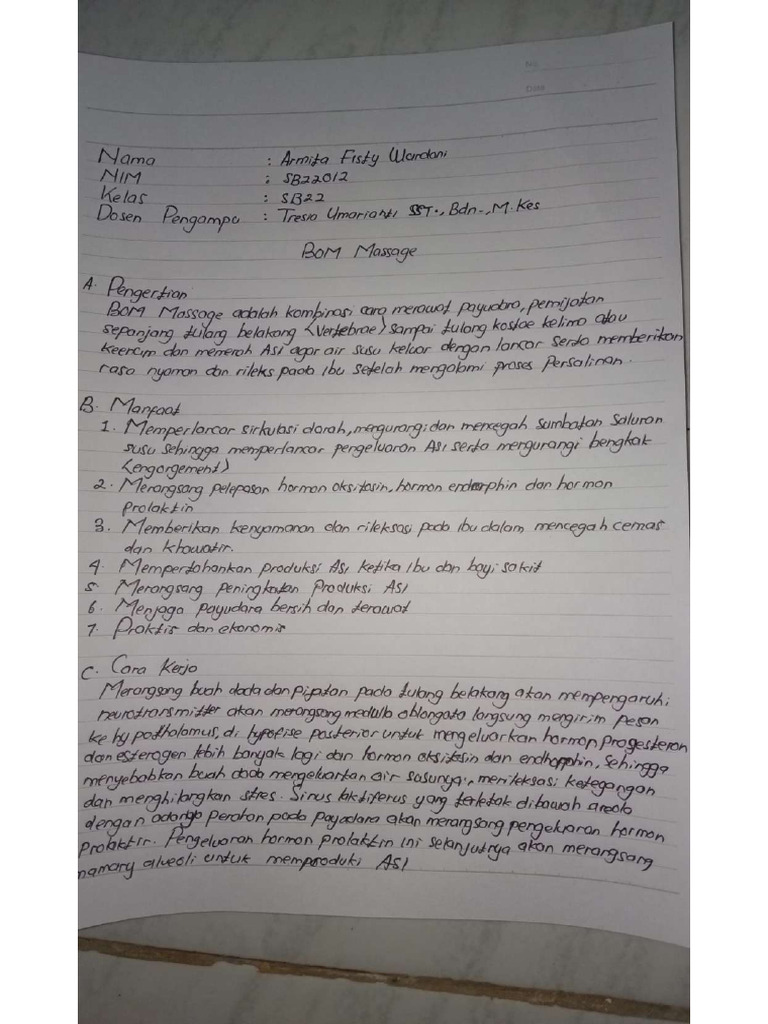 No
Date
Nama : Armita Fisty Wardani
NIM : SB22012
Kelas : SB22
Dosen Pengampu : Tresia Umarianti SST., Bdn., M.Kes
BOM Massage
A. Pengertian
BOM Massage adalah kombinasi cara merawat payudara, pemijatan
sepanjang tulang belakang (Vertebrae) sampai tulang kostae kelima atau
keenam dan memerah ASI agar air susu keluar dengan lancar serta memberikan
rasa nyaman dan rileks pada ibu setelah mengalami proses Persalinan.
B. Manfaat
1. Memperlancar sirkulasi darah, mengurangi dan mencegah sumbatan saluran
susu sehingga memperlancar pengeluaran ASI serta mengurangi bengkak
(engorgement)
2. Merangsang pelepasan hormon oksitasin, hormon endorphin dan hormon
Prolaktin
3. Memberikan kenyamanan dan rileksasi pada ibu dalam mencegah cemas
dan khawatir.
4. Mempertahankan produksi ASI ketika ibu dan bayi sakit
5. Merangsang peningkatan Produksi ASI
6. Menjaga Payudara bersih dan terawat
7. Praktis dan ekonomis
C. Cara Kerja
Merangsang buah dada dan pijatan pada tulang belakang akan mempengaruhi
neurotransmitter akan merangsang medulla oblongata langsung mengirim pesan
ke hypothalamus, di hypofise posterior untuk mengeluarkan hormon Progesteron
dan esterogen lebih banyak lagi dan hormon oksitasin dan endhopphin, sehingga
menyebabkan buah dada mengeluarkan air susunya, merileksasi ketegangan
dan menghilangkan stres. Sinus laktiferus yang terletak dibawah areola
dengan adanya perahan pada Payudara akan merangsang pengeluaran hormon
Prolaktin. Pengeluaran hormon prolaktin ini selanjutnya akan merangsang
mamary alveoli untuk memproduki ASI